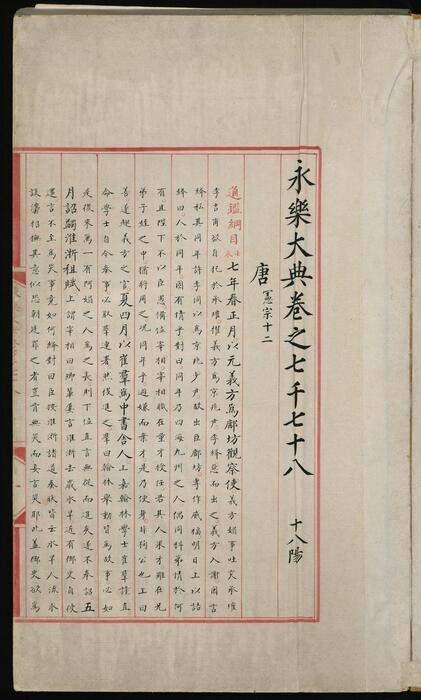 永樂大典卷之七千七十八 十八陽
唐 憲宗十二
通鑑綱目 七年春正月以元義方爲鄜坊觀察使 義方媚事吐突承璀
李吉甫欲自託於承璀擢義方爲京兆尹李絳惡而出之義方入謝因言
絳私其同年許季同以爲京兆少尹故出臣鄜坊專作威福明日上以詰
絳曰人於同年固有情乎對曰同年乃四海九州之人偶同科第情於何
有且陛下不以臣愚備位宰相宰相職在量才授任若其人果才雖在兄
弟子姪之中猶將用之况同年乎避嫌而棄才是乃便身非徇公也上曰
善遂趣義方之官夏四月以崔羣爲中書舍人上嘉翰林學士崔羣讜直
命學士自今奏事必取羣連署然後進之羣曰翰林舉動皆爲故事必如
是後來萬一有阿媚之人爲之長則下位直言無從而進矣遂不奉詔五
月詔蠲淮浙租賦上謂宰相曰卿輩屢言淮浙去歲水旱近有御史自彼
還言不至爲災事竟如何絳對曰臣按淮浙諸道奏狀皆云水旱人流求
設法招撫其意似恐朝廷罪之者豈肯無災而妄言災耶此蓋御史欲爲